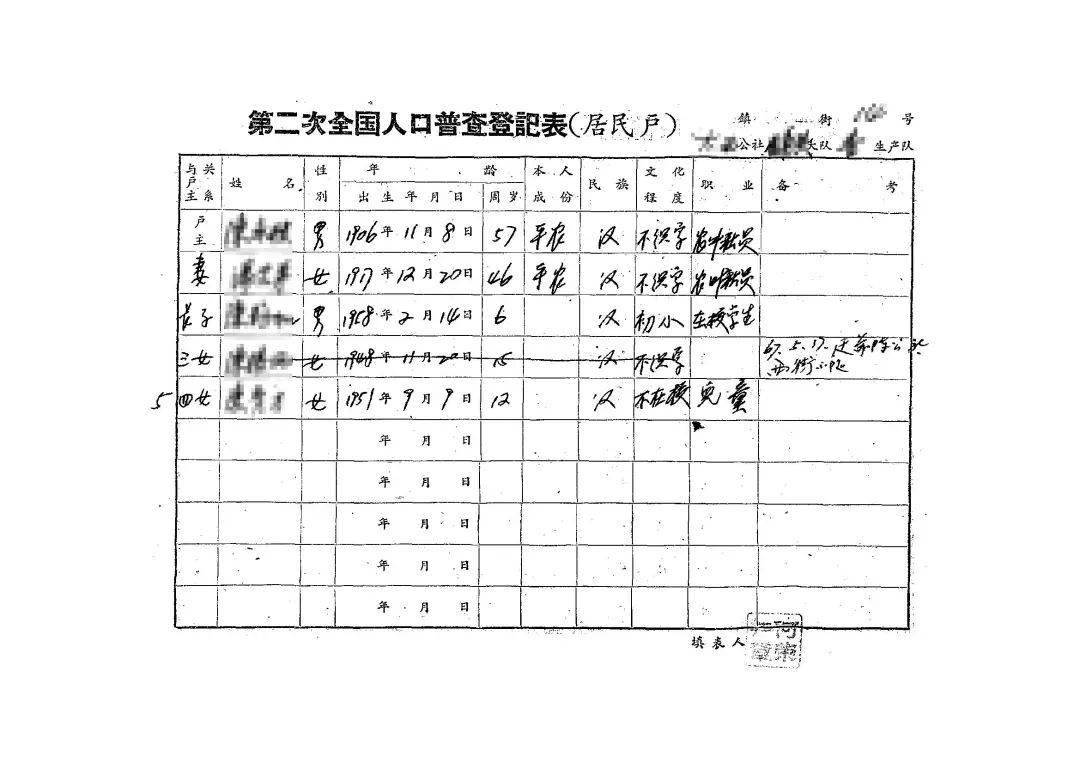 第二次全国人口普查登記表(居民戶)
鎮 街 号
公社 大队 生产队
与戶主关系 姓名 性別 年齡 本人成份 民族 文化程度 职业 备考
出生年月日 周岁
戶主 男 1906年11月8日 57 平农 汉 不识字 员
妻 女 1917年12月20日 46 平农 汉 不识字 员
长子 男 1958年2月14日 6 汉 初小 在校学生
三女 女 1948年11月20日 15 汉 不识字 67.5.17.迁
5 四女 女 1951年9月9日 12 汉 不在校 児童
年 月 日
年 月 日
年 月 日
年 月 日
年 月 日
填表人